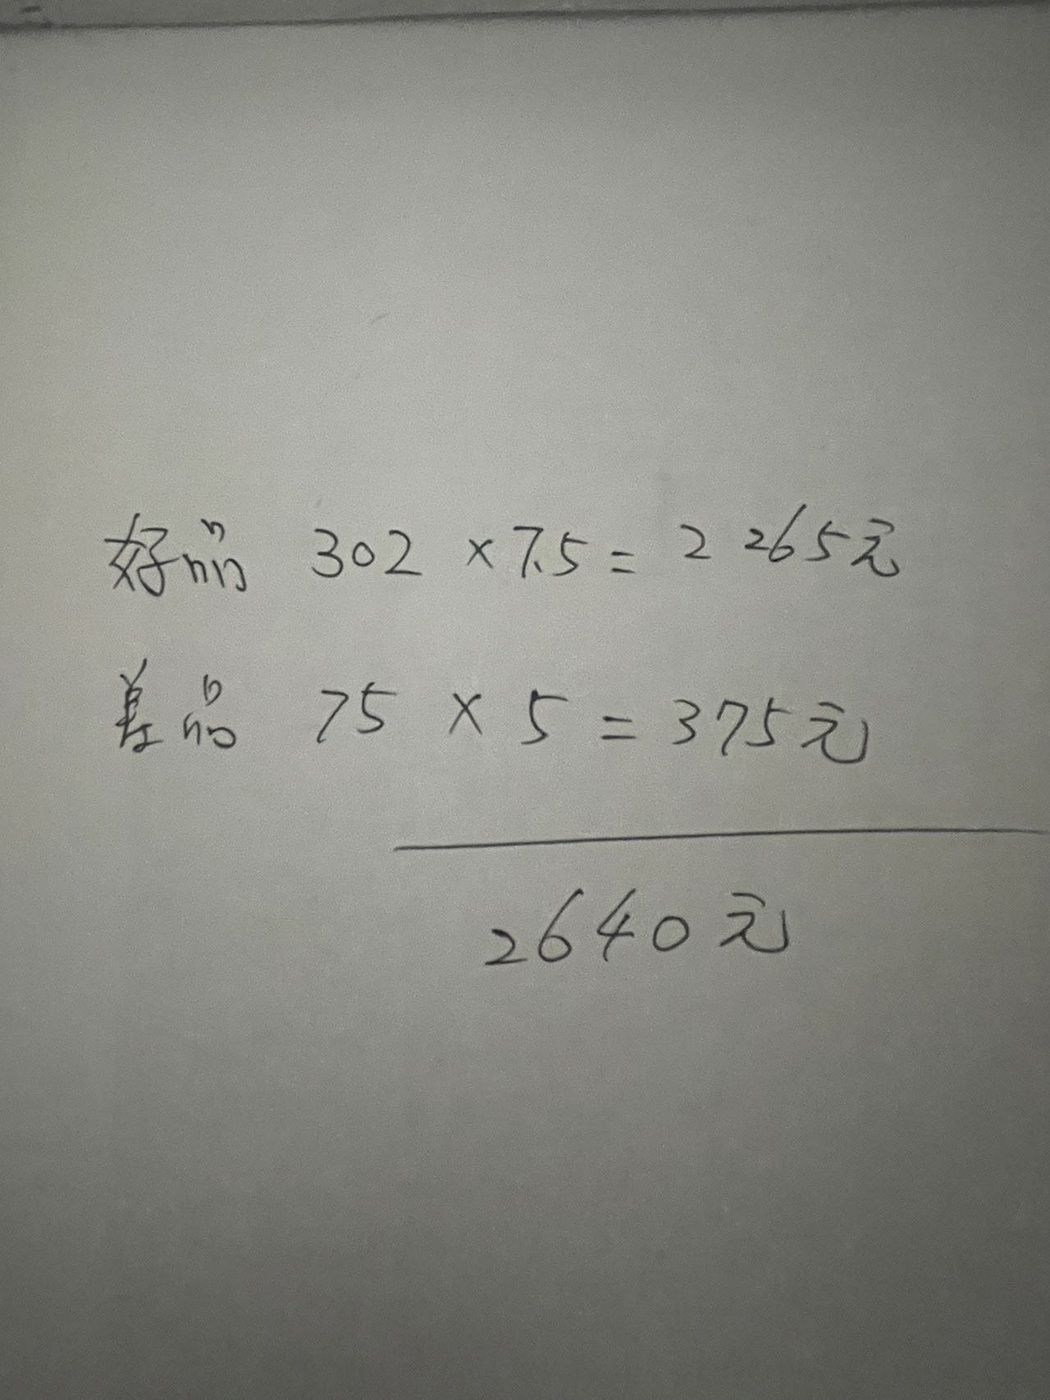 好品 302 ×7.5= 2265元
差品 75 × 5 = 375元
2640元